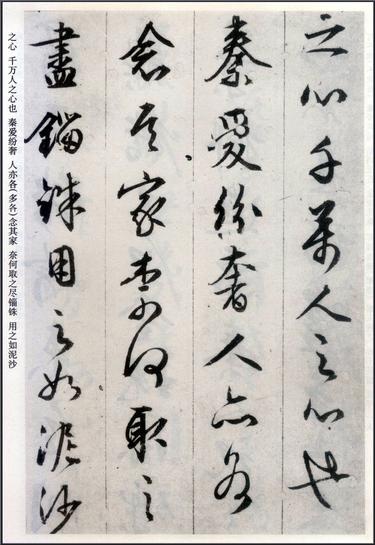 之心千萬人之心也
秦愛紛奢人亦各
念其家奈何取之
盡錙銖用之如泥沙
之心 千万人之心也 秦爱纷奢 人亦各(多各)念其家 奈何取之尽锱铢 用之如泥沙